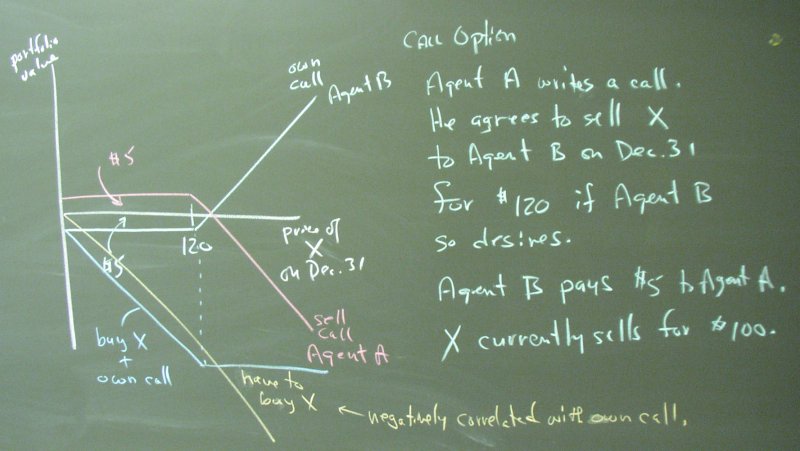 portfolio
value
$5
own
call
Agent B
120
$5
price of
X
on Dec. 31
sell
call
Agent A
buy X
+
own call
have to
buy X
negatively correlated with own call.
CALL Option
Agent A writes a call.
He agrees to sell X
to Agent B on Dec. 31
for $120 if Agent B
so desires.
Agent B pays $5 to Agent A.
X currently sells for $100.